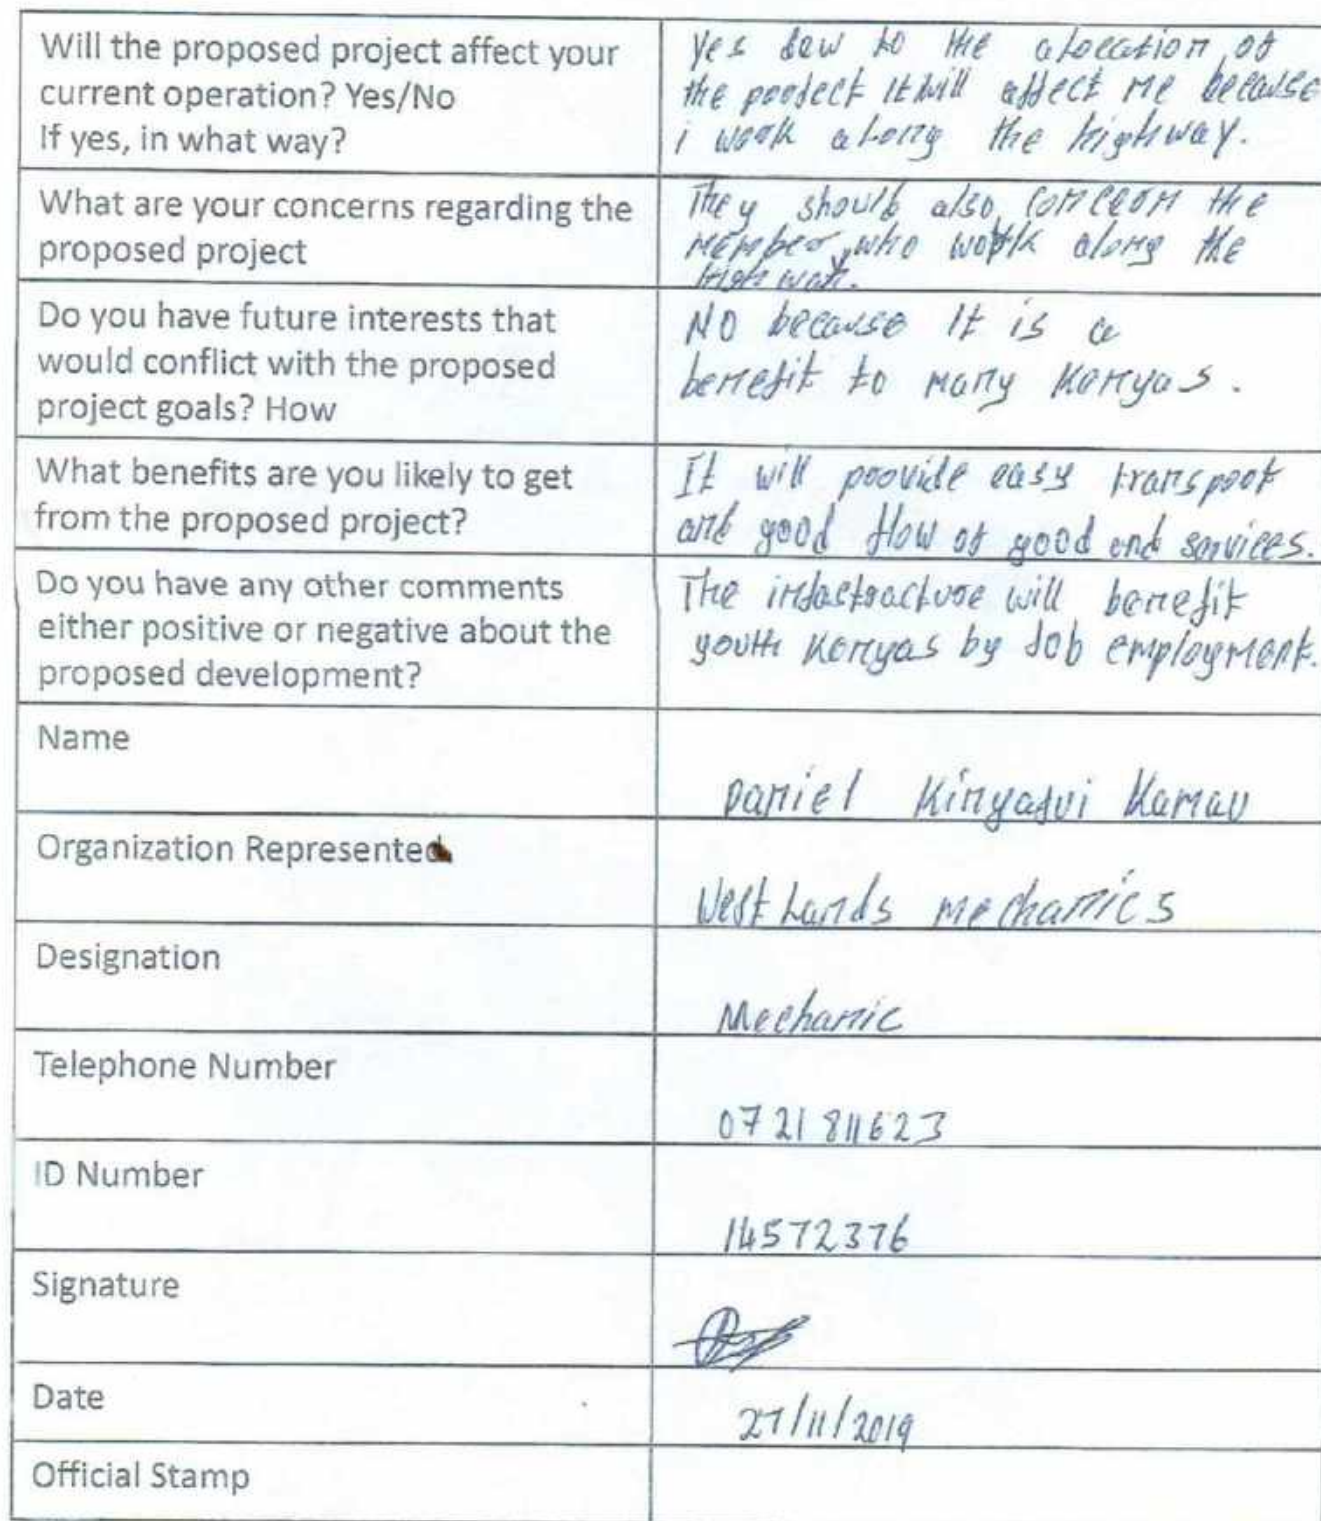 Will the proposed project affect your
current operation? Yes/No
If yes, in what way?
Yes dew to the alocation of
the project it will affect me because
i work along the highway.
What are your concerns regarding the
proposed project
They should also concern the
member who work along the
high way.
Do you have future interests that
would conflict with the proposed
project goals? How
NO because it is a
benefit to many Kenyas.
What benefits are you likely to get
from the proposed project?
It will provide easy transport
and good flow of good and services.
Do you have any other comments
either positive or negative about the
proposed development?
The infastracture will benefit
youth Kenyas by Job employment.
Name
Daniel Kinyajui Kamau
Organization Represented
West Lands mechanics
Designation
Mechanic
Telephone Number
0721 811623
ID Number
14572376
Signature
Date
27/11/2019
Official Stamp